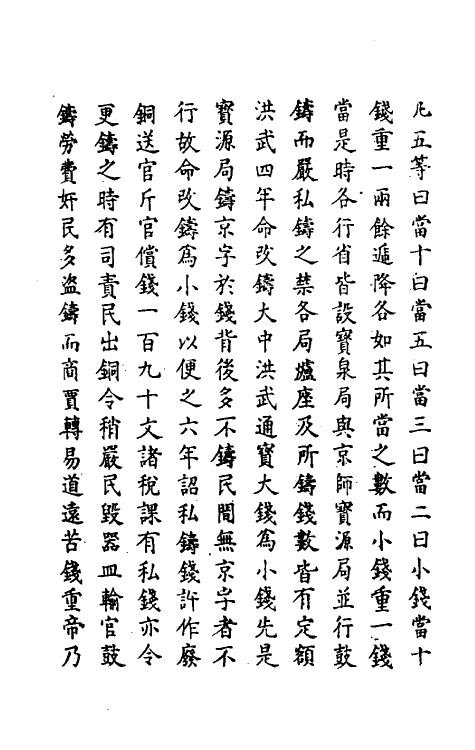 凡五等曰當十曰當五曰當三曰當二曰小錢當十
錢重一兩餘遞降各如其所當之數而小錢重一錢
當是時各行省皆設寶泉局與京師寶源局並行鼓
鑄而嚴私鑄之禁各局爐座及所鑄錢數皆有定額
洪武四年命改鑄大中洪武通寶大錢爲小錢先是
寶源局鑄京字於錢背後多不鑄民間無京字者不
行故命改鑄爲小錢以便之六年詔私鑄錢許作廢
銅送官斤官償錢一百九十文諸稅課有私錢亦令
更鑄之時有司責民出銅令稍嚴民毀器皿輸官鼓
鑄勞費奸民多盜鑄而商賈轉易道遠苦錢重帝乃